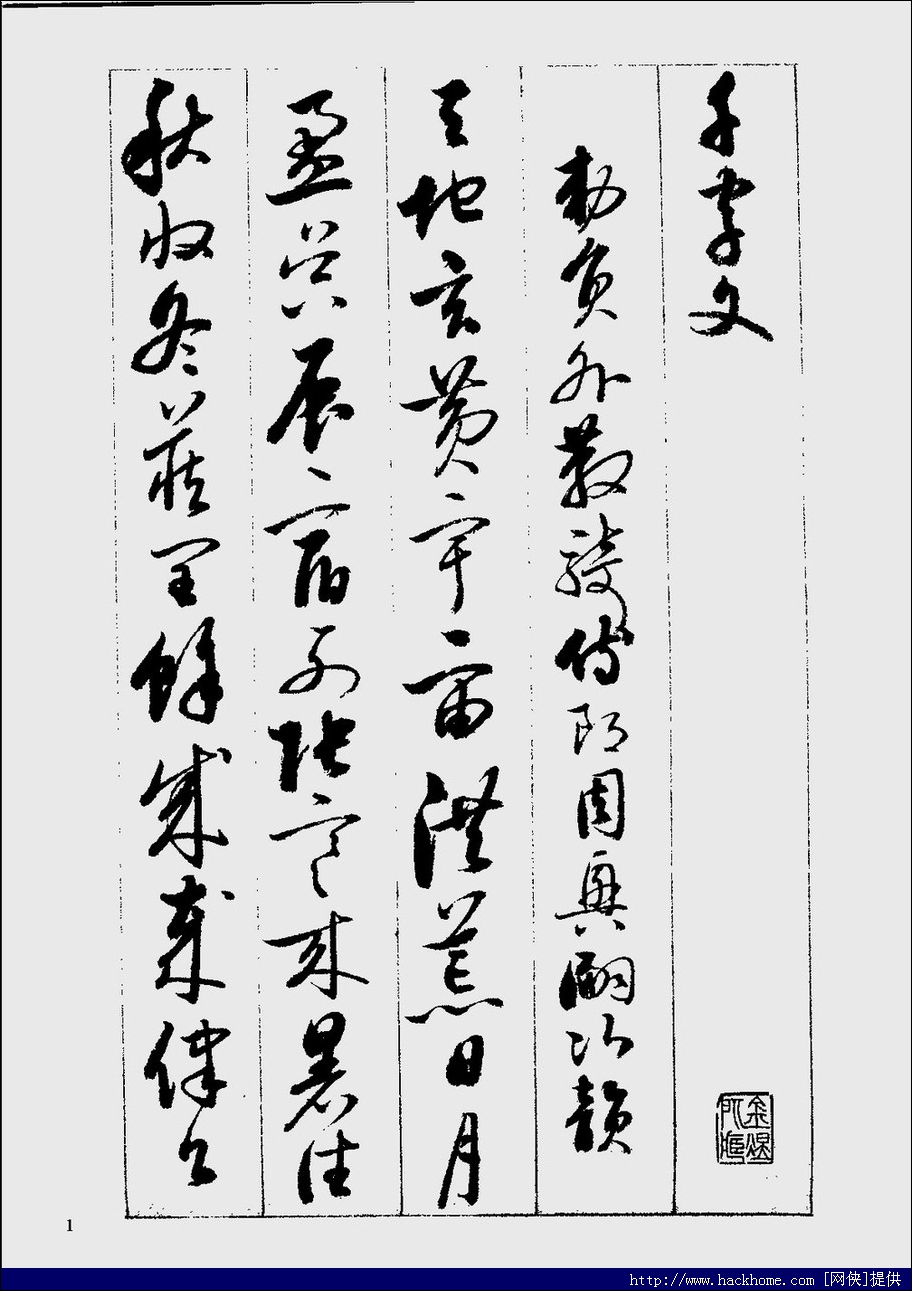 千字文
敕員外散騎侍郎周興嗣次韻
天地玄黃宇宙洪荒日月
盈昃辰宿列張寒來暑往
秋收冬藏閏餘成歲律呂
1
http://www.hackhome.com [网侠]提供